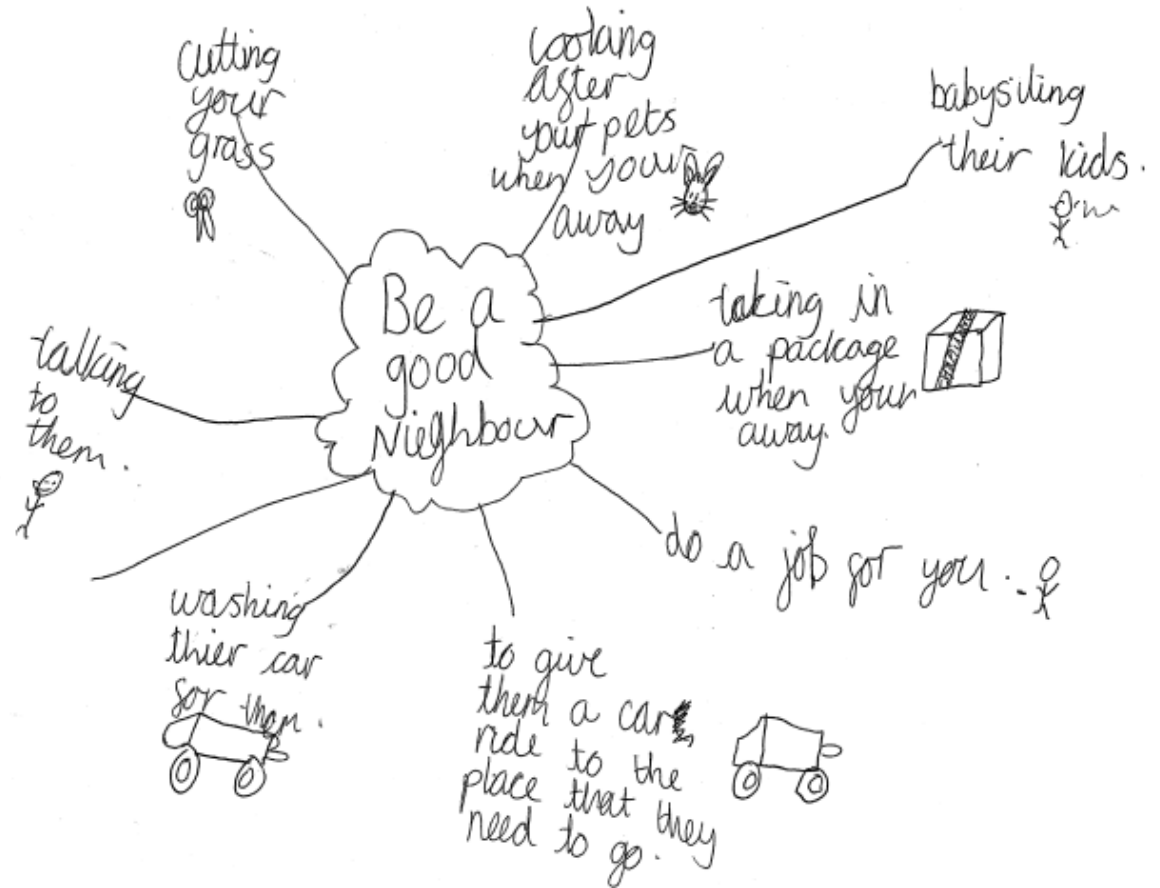 Be a
good
Nieghbour
cutting
your
grass
looking
after
your pets
when your
away
babysitting
their kids.
taking in
a package
when your
away.
do a job for you.
to give
them a car
ride to the
place that they
need to go.
washing
thier car
for them.
talking
to
them.